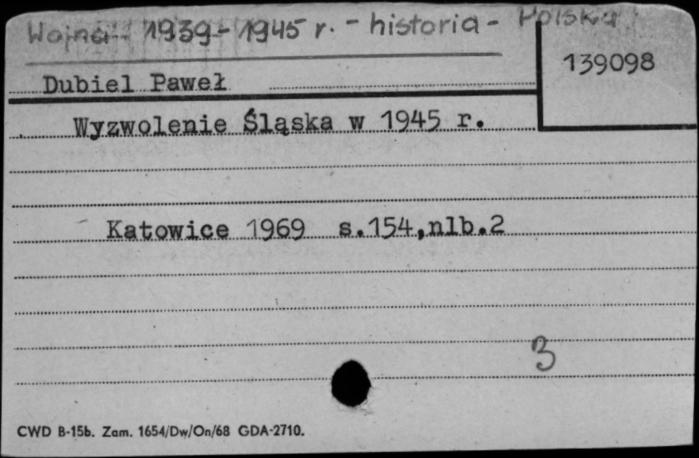 Wojna 1939-1945 r. - historia - Polska
139098
Dubiel Paweł
Wyzwolenie Śląska w 1945 r.
Katowice 1969 s.154,nlb.2
3
CWD B-15b. Zam. 1654/Dw/On/68 GDA-2710.